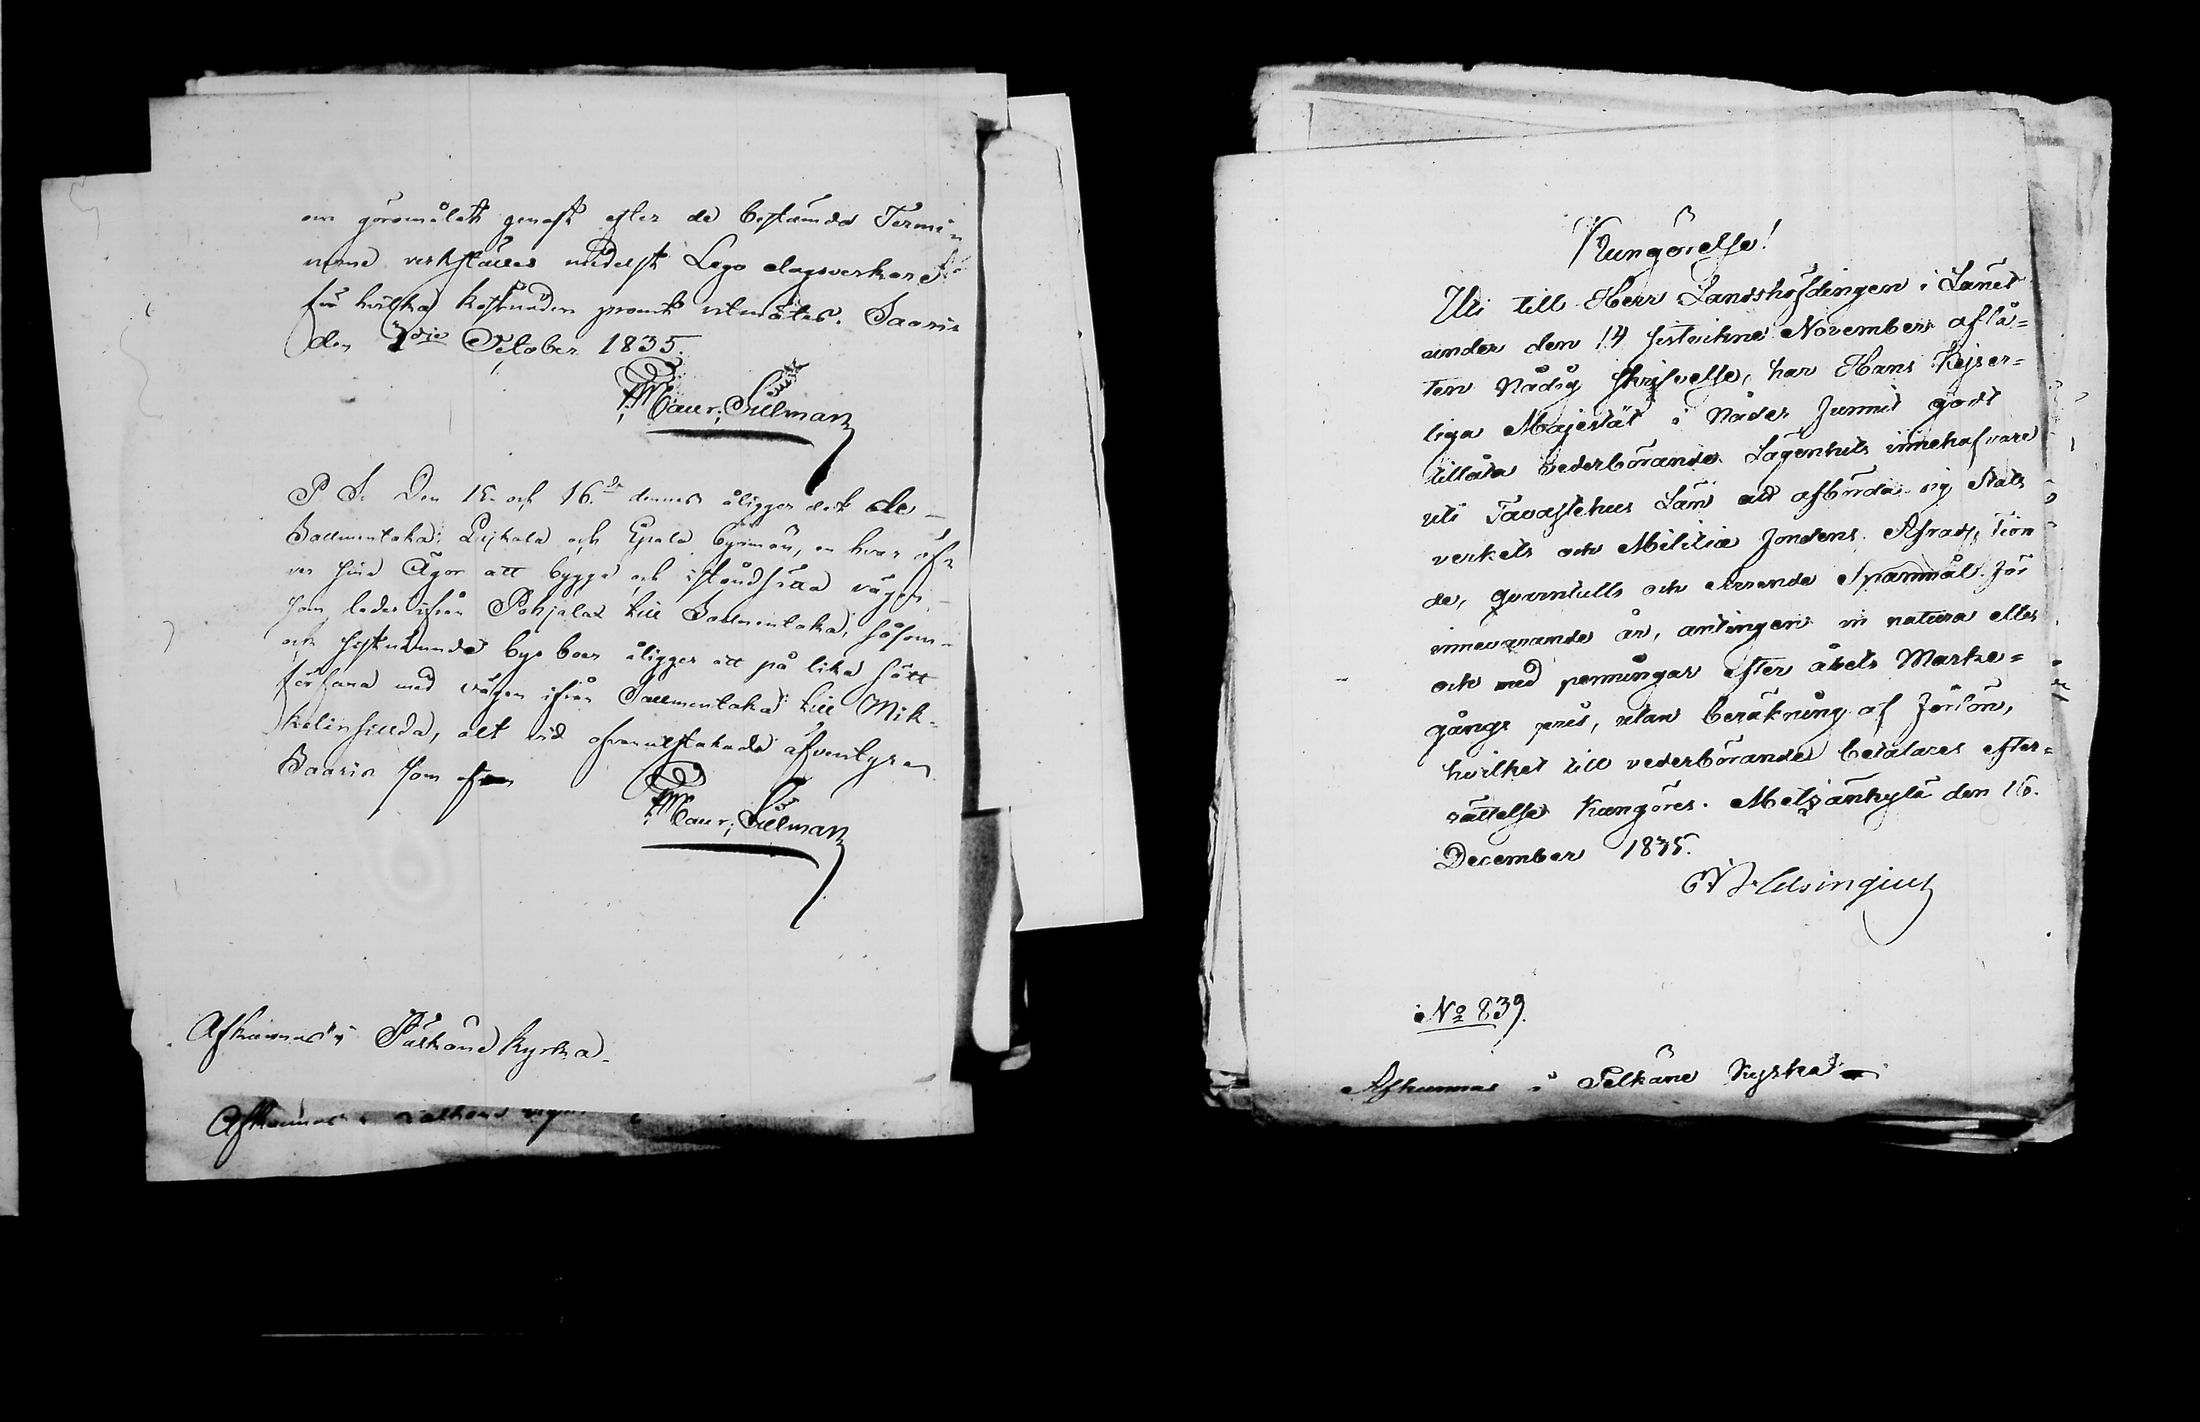 om göromålets genast efter de bestämda Termi-
nerne verkställes medelst Lego dagsverkare
för hvilka kostnaden promt utmätes. Saaris
den 7de October 1835.
Maur: Sillman
P S. Den 15. och 16.de dennes åligger det de
Sallmentaka, Luikala och Epala byamän, en hvar öf-
ver sina Ägor att bygga och iståndsätta vägen
som leder ifrån Pohjalax till Sallmentaka, såsom
och sistnämnde bys boer åligger att på lika sätt
förfara med vägen ifrån Sallmentaka till Mik-
kelinsillda, alt vid ofvanutstakade äfventyr
Saaris som ofvan
Maur: Sillman
Afkunnas i Pälkäne Kyrka.
Afkunnas i
Kungörelse!
Uti till Herr Landshöfdingen i Länet
under den 14 sistvikne November aflå=
ten Nådig skrifvelse, har Hans Kejser=
liga Majestät i Nåder funnit godt
tillåta vederbörande Lägenhets innehafvare
uti Tavastehus Län att afbörda sig Stats
verkets och Militiæ fondens Afrads, Tion
de, Qvarntulls och Arrende Spanmål för
innevarande år, antingen in natura eller
och med penningar efter årets Marke=
gångs pris, utan beräkning af förlön,
hvilket till vederbörandes betalares efter=
rättelse kungöres. Metsänkylä den 16.
December 1835.
Helsingius
No 839.
Afkunnas i Pelkäne Kyrka